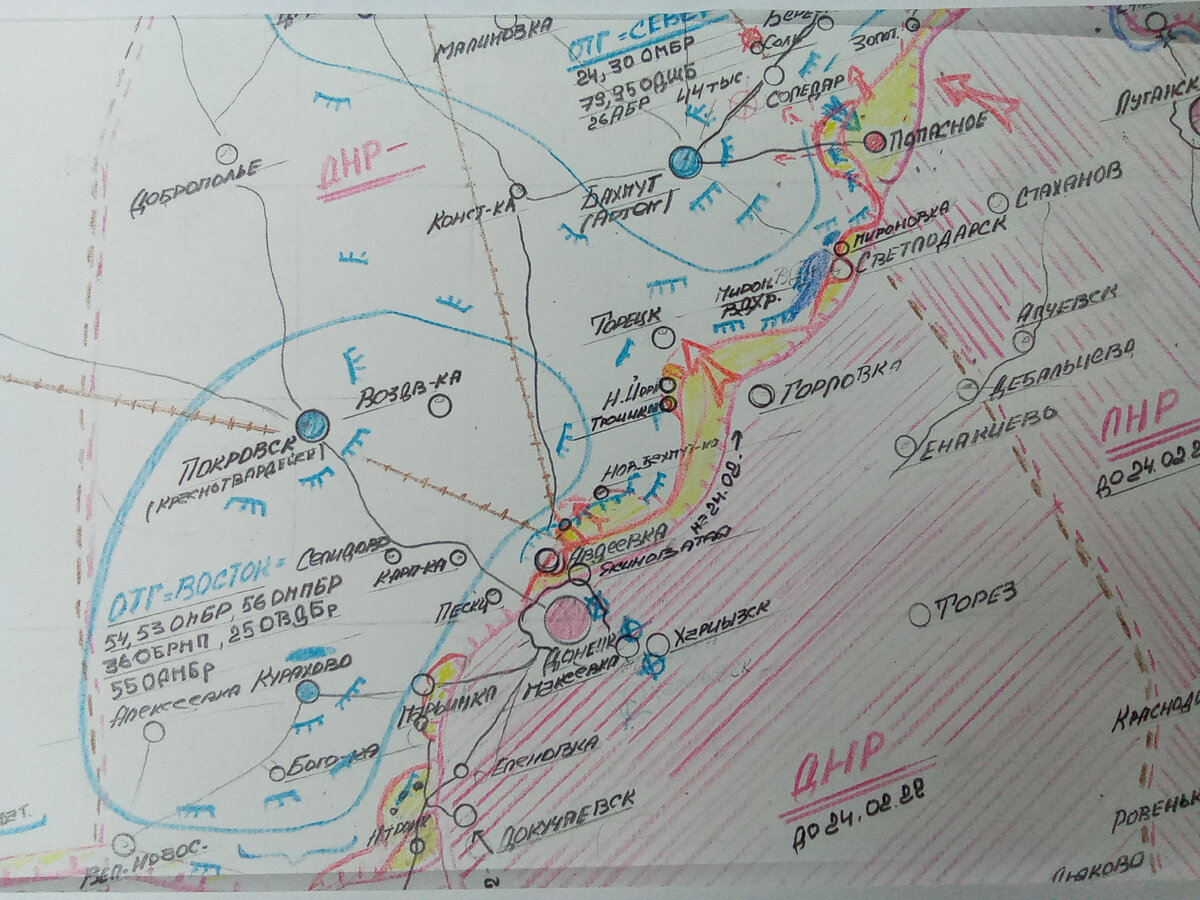 МАЛИНОВКА
ОТГ=СЕВЕР
24, 30 ОМБР
79, 95 ОДШБ
26 АБР 44 ТЫС.
СОЛЬ
ЗОЛОТ.
СОЛЕДАР
ПОПАСНОЕ
ЛУГАНСК
ДОБРОПОЛЬЕ
ДНР-
КОНСТ-КА
БАХМУТ
(АРТЕМ)
СТАХАНОВ
МИРОНОВКА
СВЕТЛОДАРСК
МИРОН.
ВДХР.
ТОРЕЦК
АЛЧЕВСК
ДЕБАЛЬЦЕВО
ВОЗДВ-КА
Н.ЙОРК
ГОРЛОВКА
ЕНАКИЕВО
ЛНР
ДО 24.02.2
ПОКРОВСК
(КРАСНОГВАРДЕЙСК)
НОВ. БАХМУТ-КА
НА 24.08.
АВДЕЕВКА
ЯСИНОВАТАЯ
ОТГ=ВОСТОК=
СЕЛИДОВО
КАРЛ-КА
54, 53 ОМБР, 56 ОМПБР
36 ОБРМП, 25 ОВДБР
55 ОАБР
ПЕСКИ
ТОРЕЗ
ДОНЕЦК
ХАРЦЫЗСК
МАКЕЕВКА
АЛЕКСЕЕВКА
КУРАХОВО
МАРЬИНКА
КРАСНОД
БОГО-КА
ЕЛЕНОВКА
ДНР
ДО 24.02.22
ДОКУЧАЕВСК
РОВЕНЬК
ВЕЛ. НОВОС.
ДЬЯКОВО